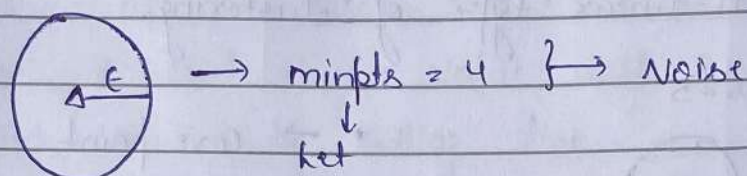 ∈ → minpts = 4 } → Noise
↓
Let